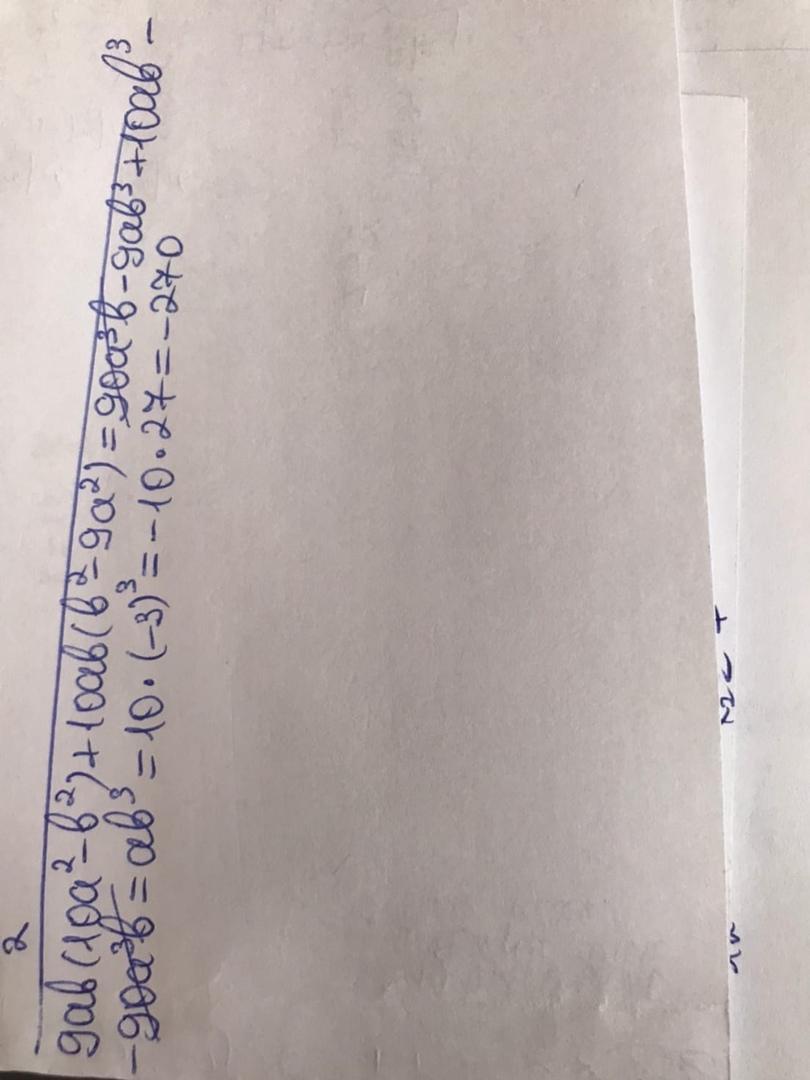 2
9ab(10a²-b²)+10ab(b²-9a²)=90a³b-9ab³+10ab³-
-90a³b=ab³=10·(-3)³=-10·27=-270